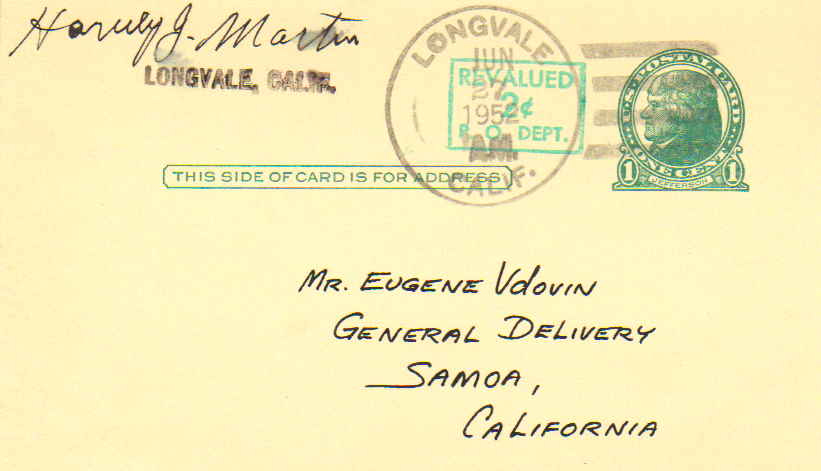 Harvey J. Martin
LONGVALE, CALIF.
LONGVALE
JUN
27
1952
AM.
CALIF.
REVALUED
2¢
P. O. DEPT.
U.S. POSTAL CARD
1 ONE CENT 1
JEFFERSON
THIS SIDE OF CARD IS FOR ADDRESS
MR. EUGENE VDOVIN
GENERAL DELIVERY
SAMOA,
CALIFORNIA